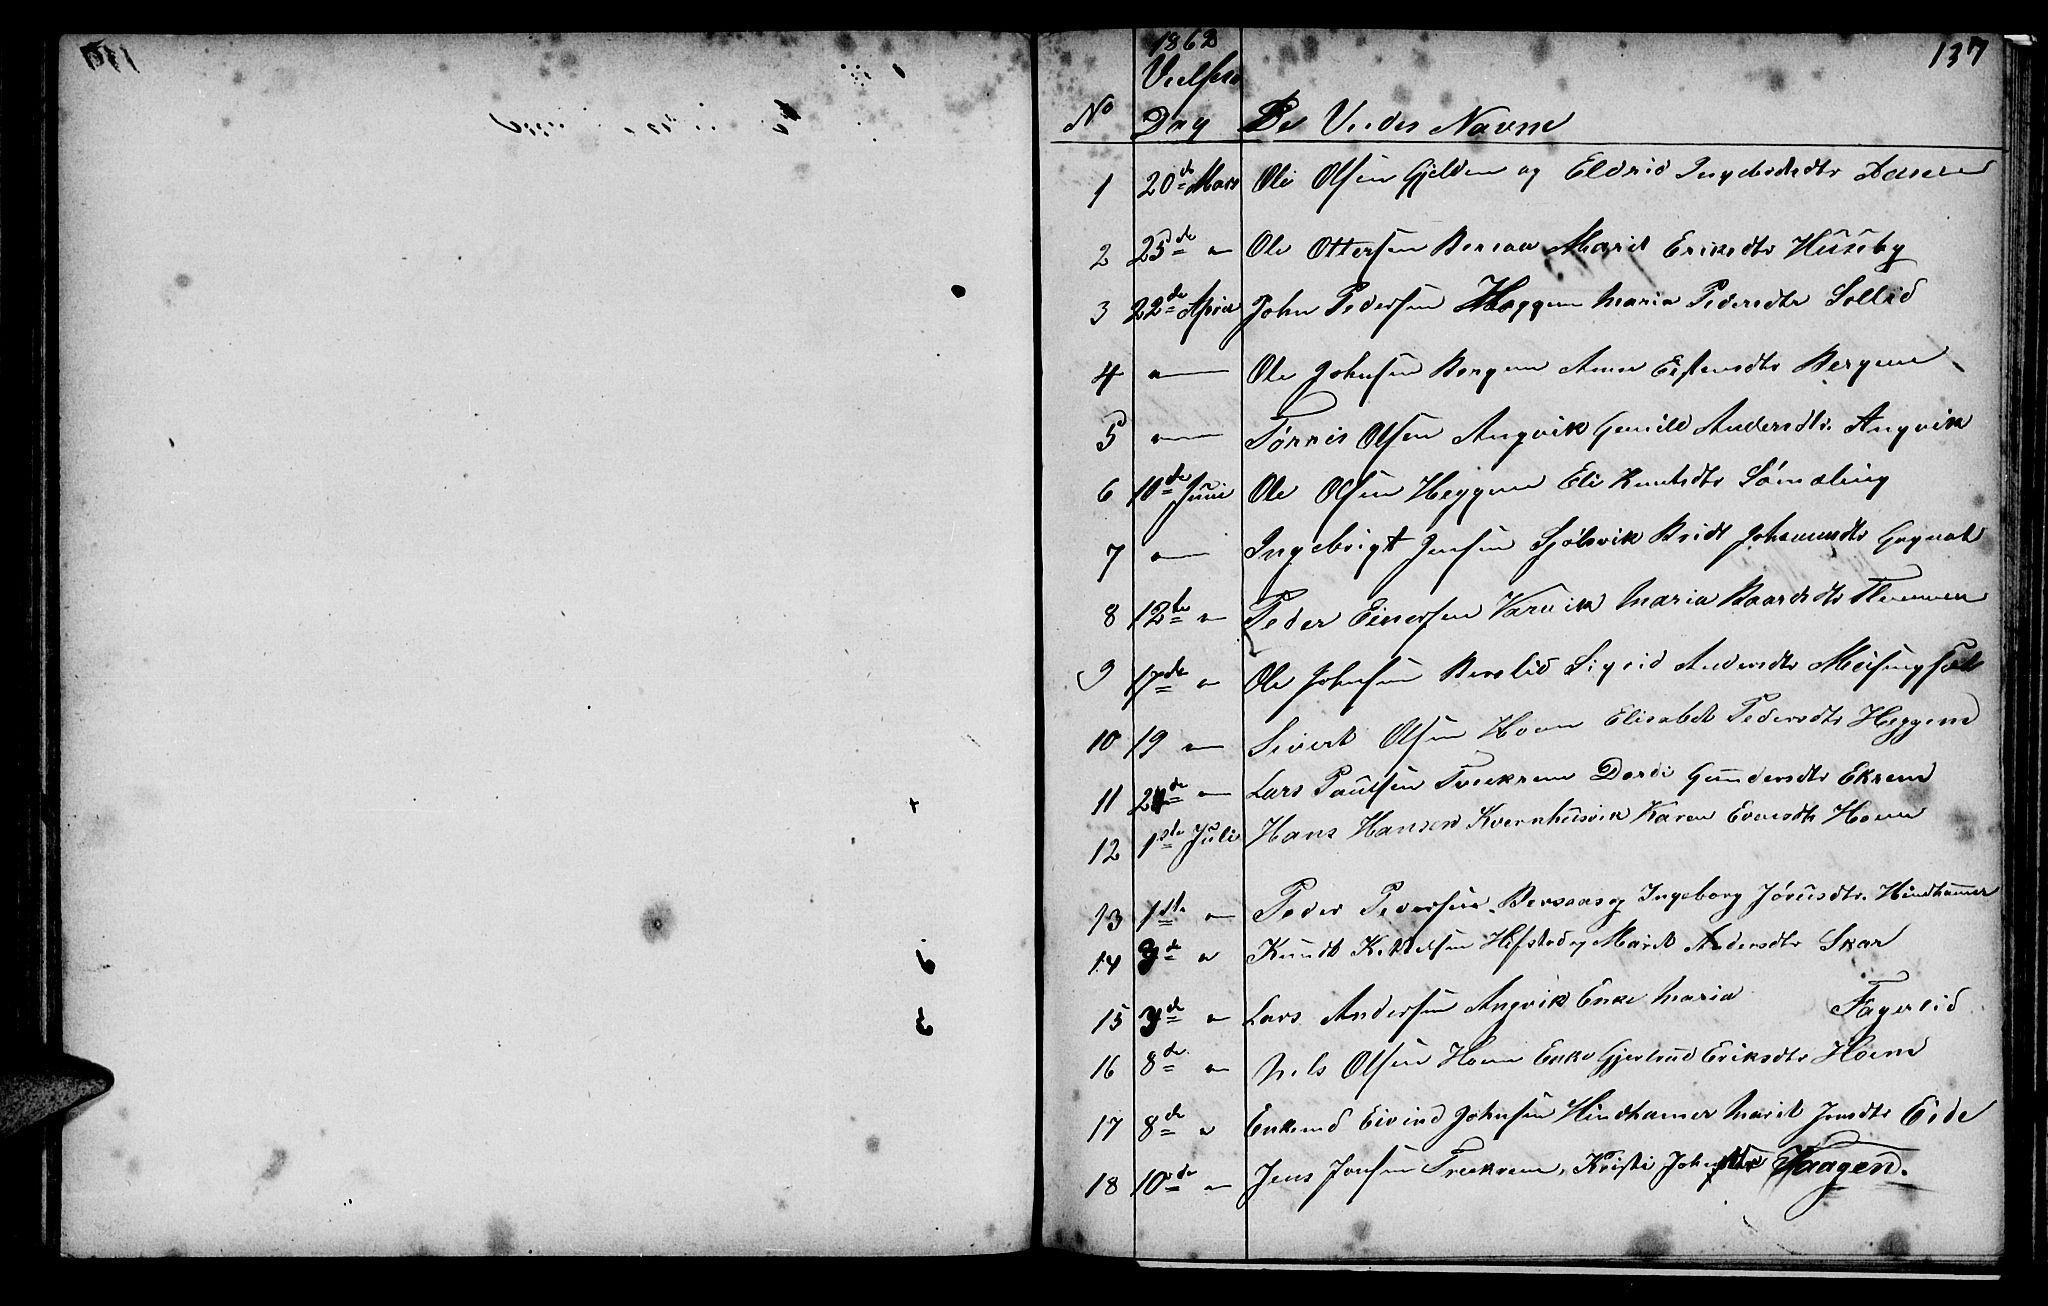 137
1862
Vielses
No Dag De Viedes Navne
1 20de Mars Ole Olsen Gjelden og Eldrid Ingebrdtr
2 25de " Ole Ottersen Bersaa Marit Eriksdtr Huseby
3 22de April John Pedersen Heggem Maria Pedersdtr Sollid
4 " Ole Johnsen Bergem Anne Estensdtr Bergem
5 " Tørris Olsen Angvik Gunild Andersdtr. Angvik
6 10de Juni Ole Olsen Heggem Eli Knutsdtr
7 " Ingebrigt Jensen Sjølsvik Bridt Johannesdtr Gagnat
8 12te " Peder Einersen Varvik Maria Baardsdtr
9 17de " Ole Johnsen Sigrid Andersdtr Meisingset
10 19 " Sivert Olsen Hoem Elisabet Pedersdtr Heggem
11 24de " Lars Paulsen Treekrem Dordi Gundersdtr Ekrem
12 1ste Juli Hans Hansen Kvernhusvik Karen Evensdtr Hoem
13 1ste " Peder Pedersen Bersaas og Ingeborg Jørensdtr. Hindhamer
14 3de " Knudt Kittelsen Marit Andersdtr Skar
15 3de " Lars Andersen Angvik Enke Maria Fagerlid
16 8de " Nils Olsen Hoem Enke Gjertrud Eriksdtr Hoem
17 8de " Enkemd Eivind Johnsen Hindhamer Marit Jonsdtr Eide
18 10de " Jens Jonsen Treekrem, Kristi Johnsdtr Vaagen.